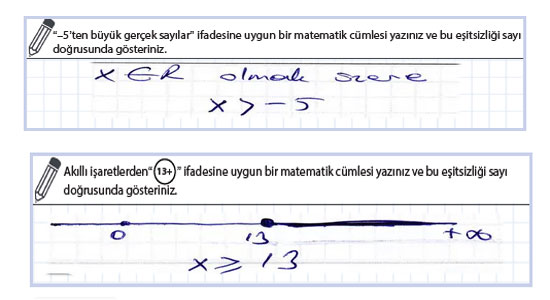 "–5'ten büyük gerçek sayılar" ifadesine uygun bir matematik cümlesi yazınız ve bu eşitsizliği sayı
doğrusunda gösteriniz.
x ∈ R olmak üzere
x > -5
Akıllı işaretlerden "13+" ifadesine uygun bir matematik cümlesi yazınız ve bu eşitsizliği sayı
doğrusunda gösteriniz.
0 13 +∞
x ≥ 13